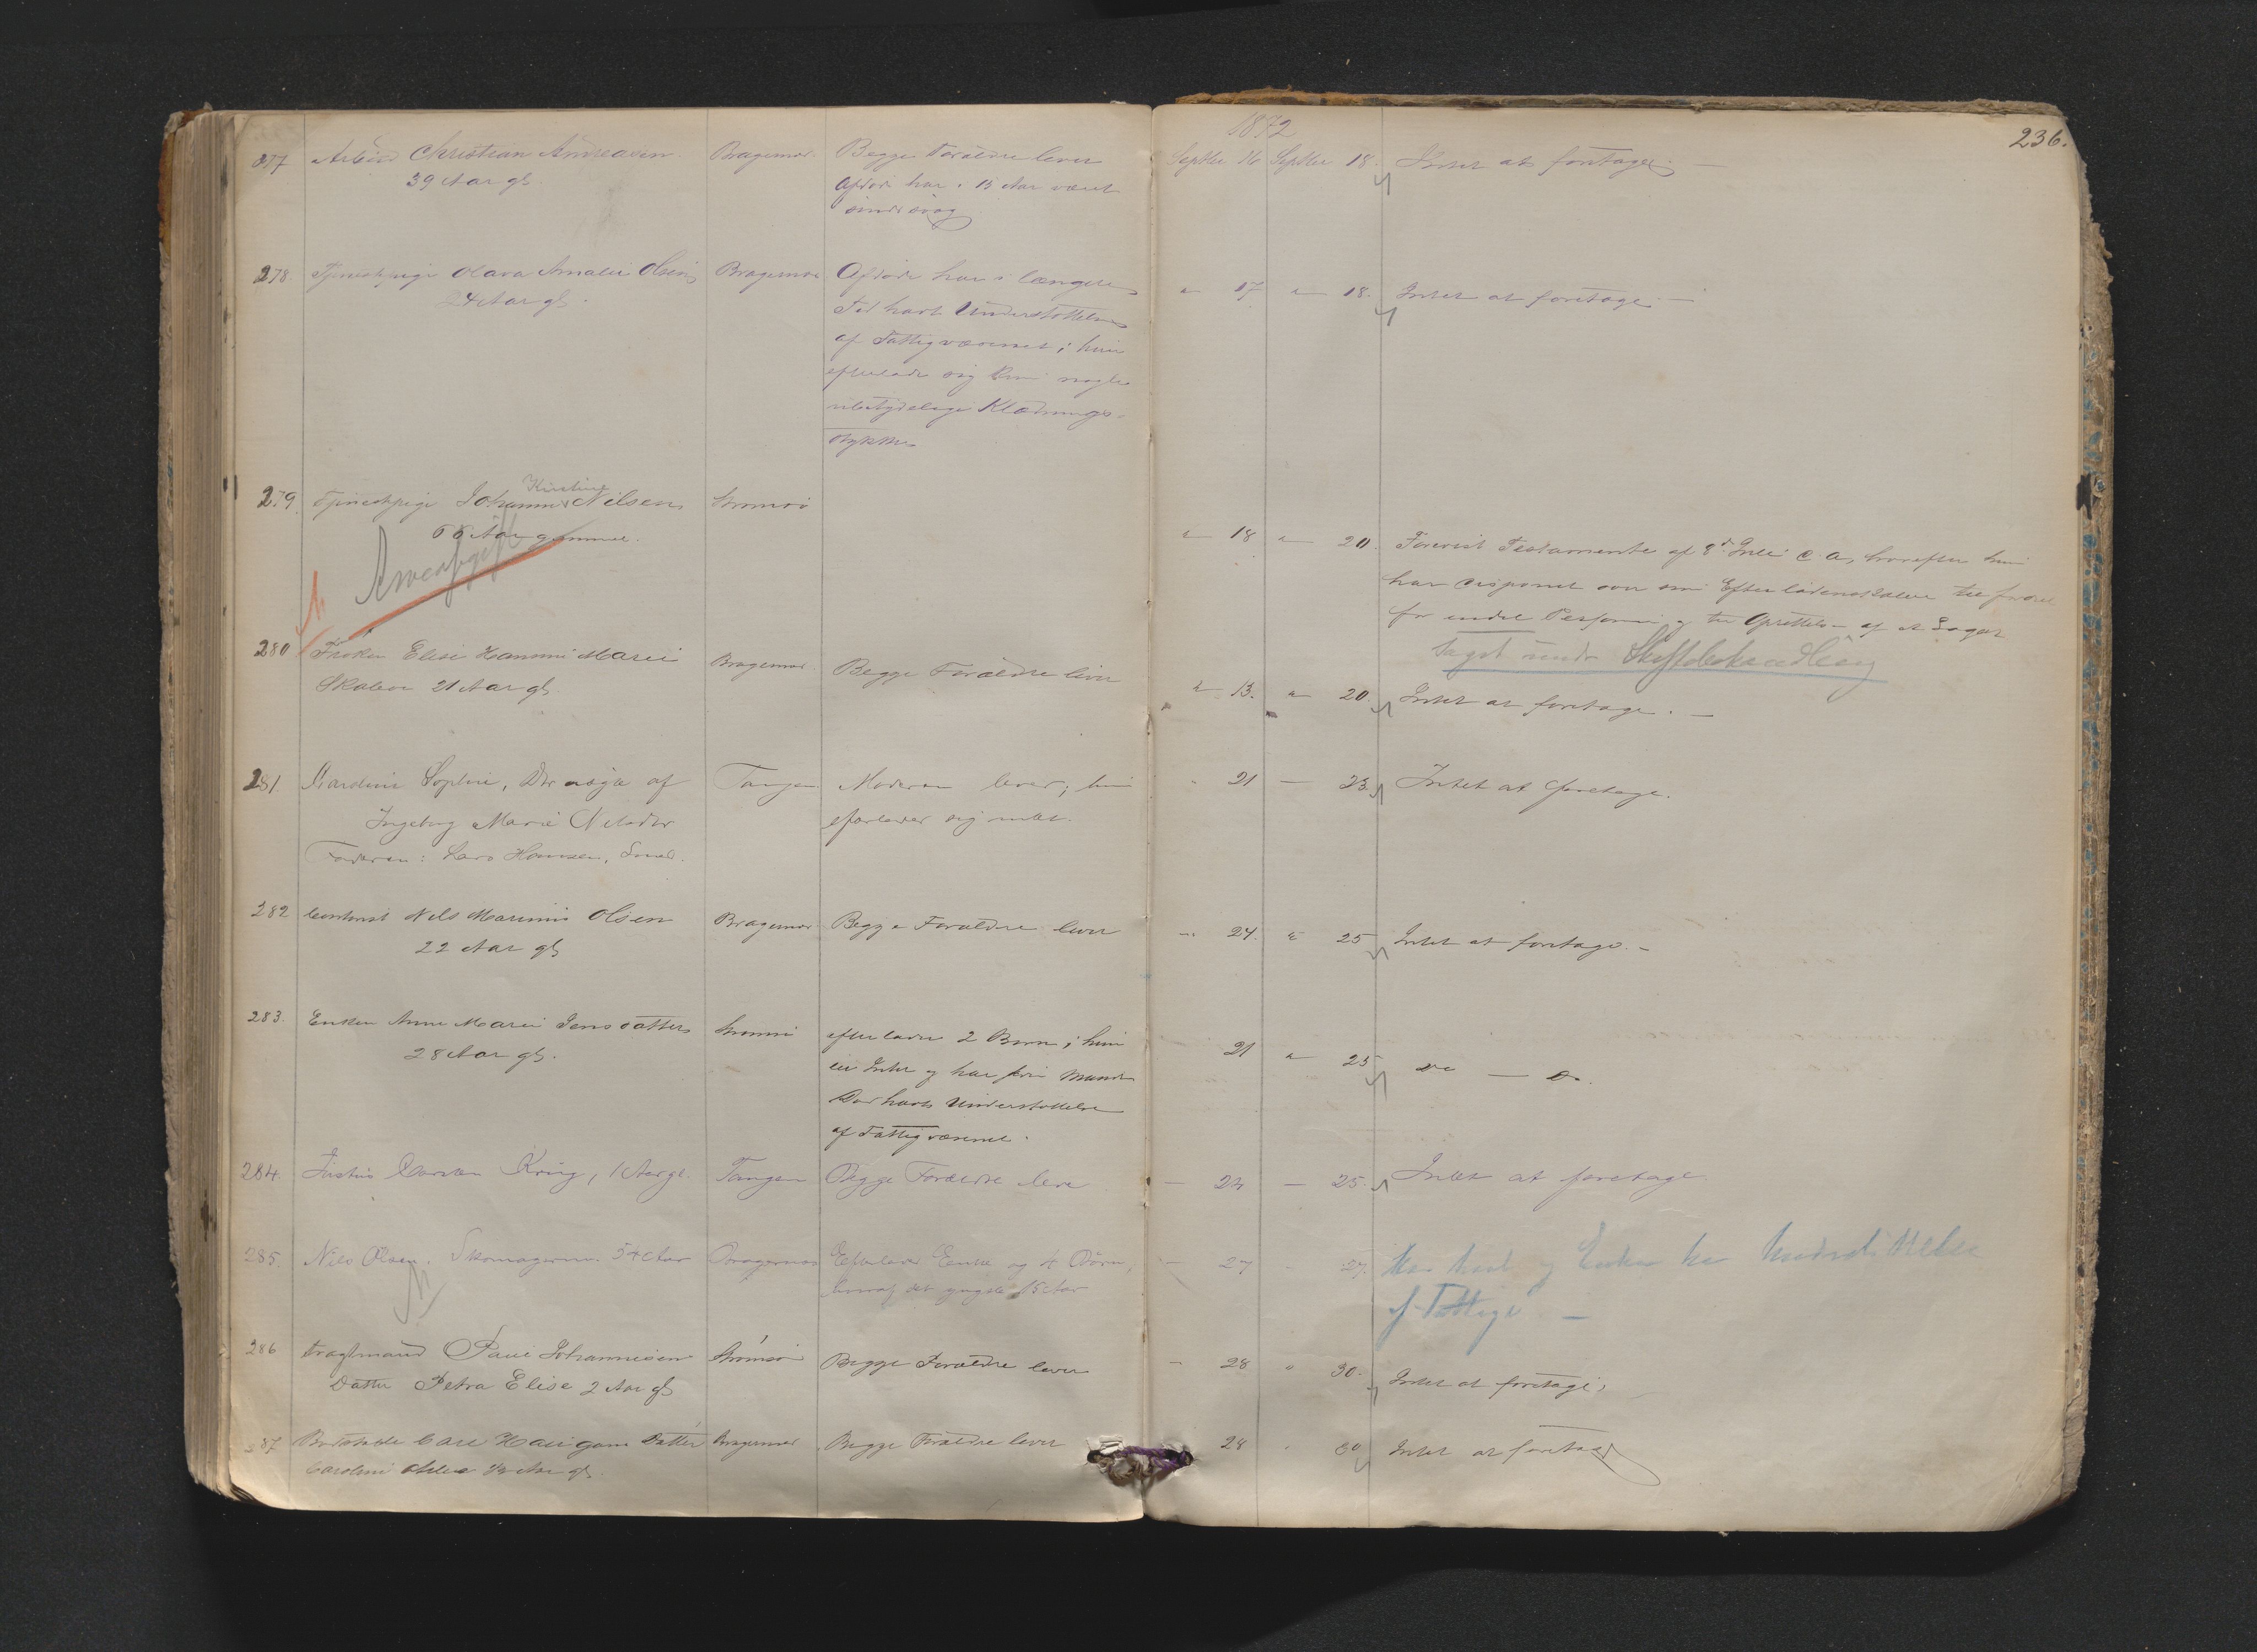 1872
236.
277 Arbeid Christian Andreasen Bragernes Begge Forældre lever Septber 16 Septber 18. Intet at foretage. —
39 Aar gl. Afdøde har i 13 Aar været
sindssvag
278. Tjenestepige Olava Amalie Olsen Bragernes Afdøde har i længere " 17 " 18. Intet at foretage. —
24 Aar gl. Tid havt Understøttelse
af Fattigvæsenet; hun
efterlader sig kun nogle
ubetydelige Klædnings-
stykker
Kirstine
279. Tjenestepige Johanne Nilsen Strømsø " 18 " 20.
Aar gammel.
Arveafgift
Forevist Testamente af 8de Juli d. A, hvorefter hun
har disponeret over sine Efterladenskaber til fordel
for andre Personer og til Oprettelse af et Legat
Taget under Skiftebehandling
280 Frøken Elise Hannine Marie Bragernes Begge Forældre lever " 13. " 20. Intet at foretage. —
21 Aar gl
281. Sophie, Dtr af Tangen Moderen lever; hun " 21 — 23 Intet at foretage.
Ingeborg Marie Nilsdtr efterlader sig intet.
Faderen: Lars Hansen, Smed.
282 Contorist Nils Marinius Olsen Bragernes Begge Forældre lever " 24. " 25 Intet at foretage. —
22 Aar gl
283. Enken Anne Marie Jensdatter Strømsø efterlader 2 Børn; hun 21 " 25 do — do.
28 Aar gl. eier Intet og har siden Mandens
Død havt Understøttelse
af Fattigvæsenet.
284. Justus Carsten Krüg, 1 Aar gl. Tangen Begge Forældre leve — 24 — 25. Intet at foretage
285. Nils Olsen. Skomagersv. 54 Aar Bragernes Efterlader Enke og 4 Børn, — 27 27. Har havt og Enken har Understøttelse
hvoraf det yngste 15 Aar af Fattigv. —
286 Fragtmand Paul Johannesen Strømsø Begge Forældre lever — 28 " 30. Intet at foretage.
Datter Petra Elise 2 Aar gl
287 Carl Datter Bragernes Begge Forældre lever 28 30 Intet at foretage
Caroline 1/2 Aar gl.